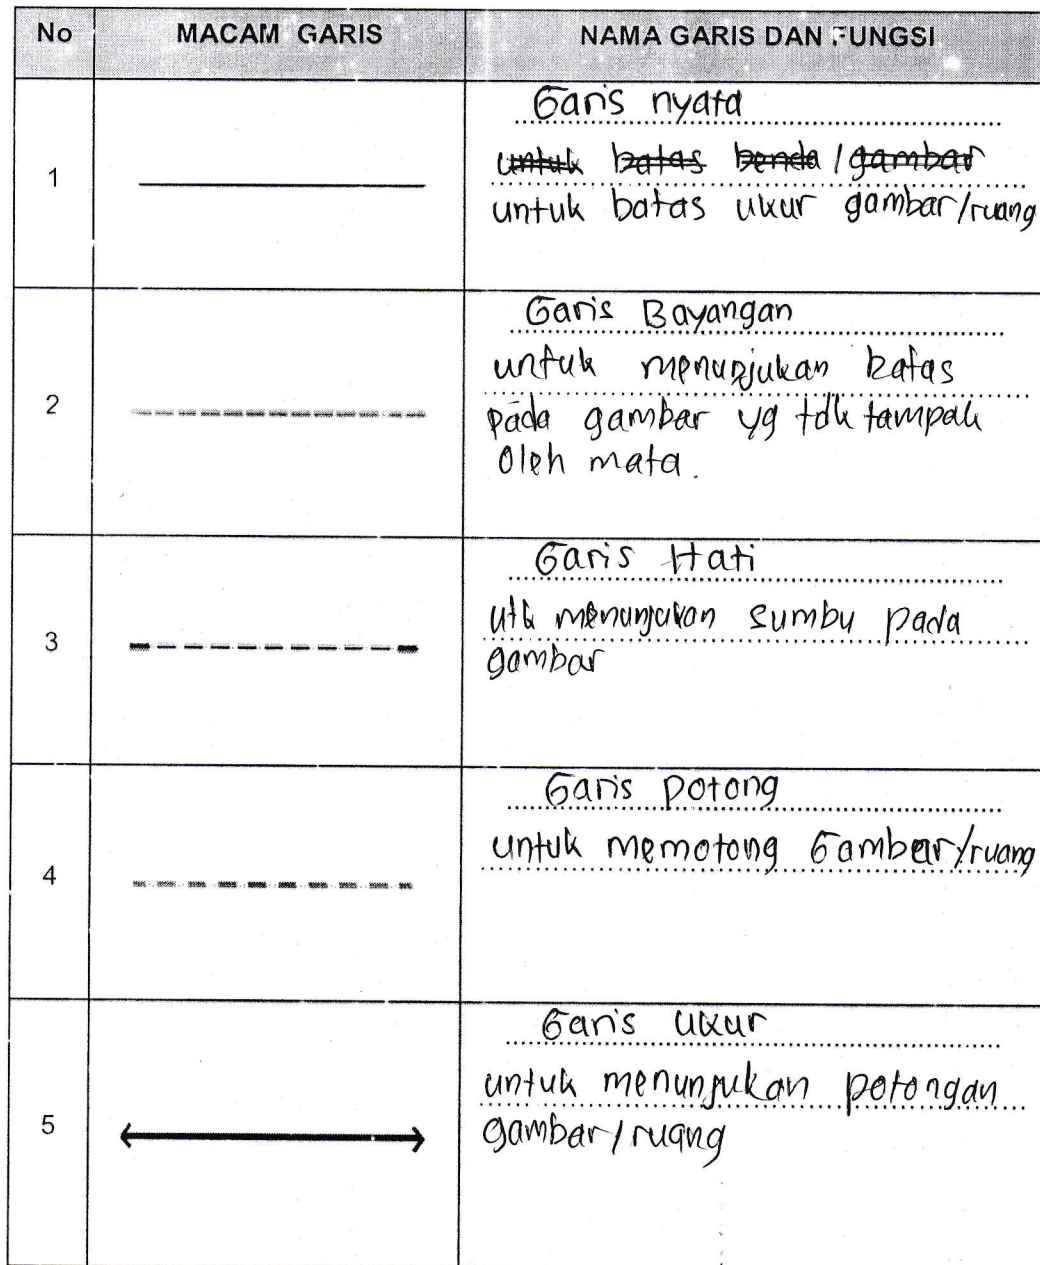 No MACAM GARIS NAMA GARIS DAN FUNGSI
1
Garis nyata
untuk batas benda / gambar
untuk batas ukur gambar/ruang
2
Garis Bayangan
untuk menunjukan batas
pada gambar yg tdk tampak
oleh mata.
3
Garis Hati
utk menunjukan sumbu pada
gambar
4
Garis Potong
untuk memotong Gambar/ruang
5
Garis Ukur
untuk menunjukan potongan
gambar/ruang